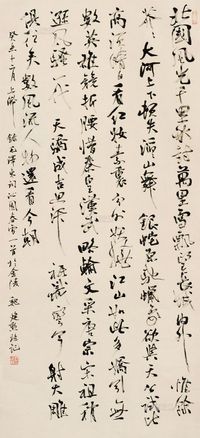 北國風光千里冰封萬里雪飄望長城內外惟餘
莽莽大河上下頓失滔滔山舞銀蛇原馳蠟象欲與天公試比
高須晴日看紅妝素裹分外妖嬈江山如此多嬌引無
數英雄競折腰惜秦皇漢武略輸文采唐宗宋祖稍
遜風騷一代天驕成吉思汗祗識彎弓射大雕
俱往矣數風流人物還看今朝
十二月上浣錄毛澤東詞沁園春雪一首於金陵